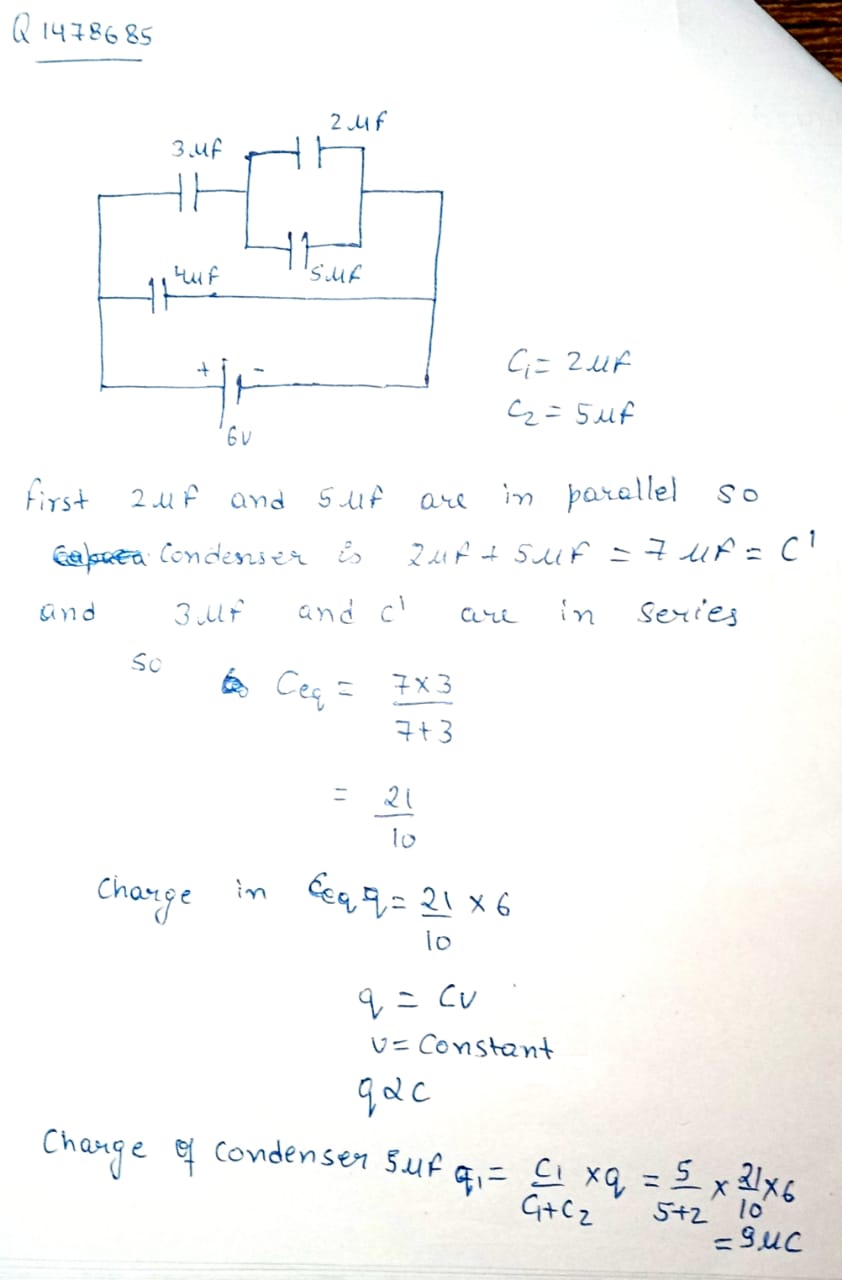 Q 1478685
2 μf
3 μf
4μf
5 μf
+ -
6v
C₁ = 2 μf
C₂ = 5 μf
first 2 μf and 5 μf are in parallel so
Condenser is 2μf + 5μf = 7 μf = C'
and 3 μf and c' are in series
so Ceq = 7×3 / 7+3
= 21 / 10
Charge in Ceq q = 21 / 10 × 6
q = CV
V = Constant
q ∝ C
Charge of Condenser 5μf q₁ = C₁ / C₁+C₂ × q = 5 / 5+2 × 21 / 10 × 6
= 9 μC